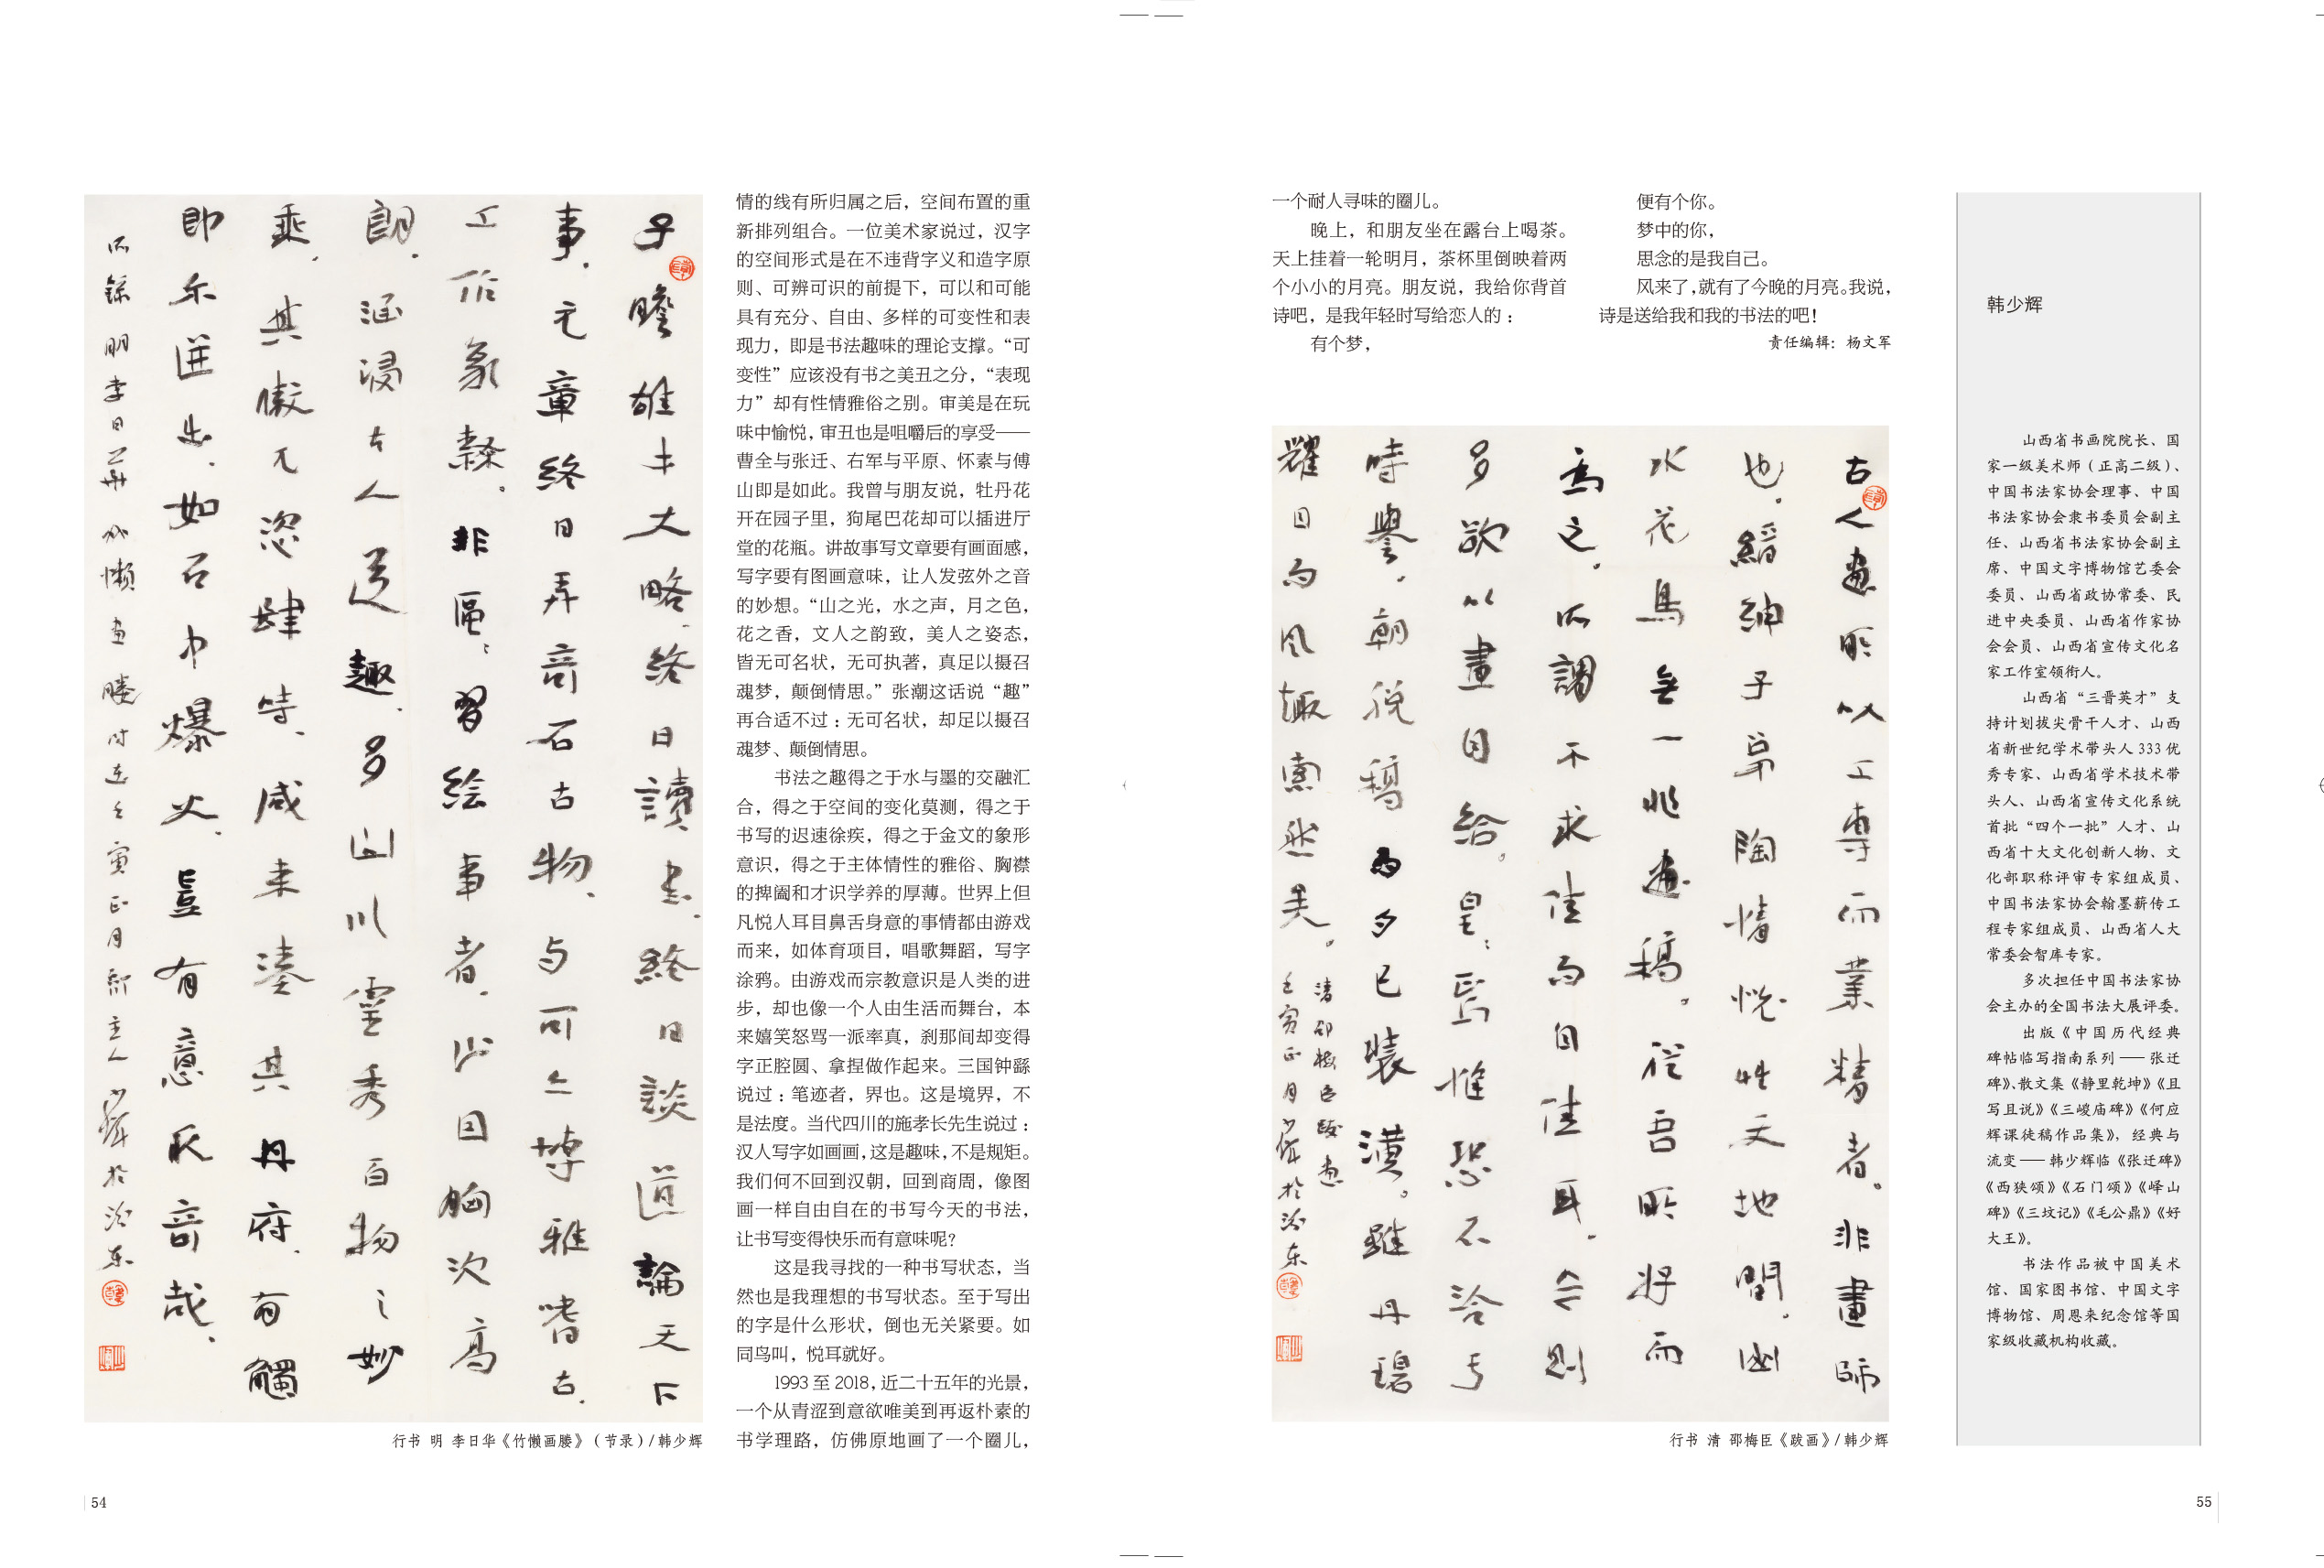 子瞻雄才大略终日讀书終日談道論天下
事元章终日弄奇石古物与可亦博雅嗜古
工作篆隸非區区習绘事者止因胸次高
朗涵浸古人道趣多山川靈秀百物之妙
乘其傲兀恣肆時咸来凑其丹府有觸
即尔迸出如石中爆火豈有意取奇哉
所錄明李日華竹懒画媵时在壬寅正月主人少辉於汾东
行书 明 李日华《竹懒画媵》(节录)/韩少辉
54
情的线有所归属之后，空间布置的重
新排列组合。一位美术家说过，汉字
的空间形式是在不违背字义和造字原
则、可辨可识的前提下，可以和可能
具有充分、自由、多样的可变性和表
现力，即是书法趣味的理论支撑。“可
变性”应该没有书之美丑之分，“表现
力”却有性情雅俗之别。审美是在玩
味中愉悦，审丑也是咀嚼后的享受——
曹全与张迁、右军与平原、怀素与傅
山即是如此。我曾与朋友说，牡丹花
开在园子里，狗尾巴花却可以插进厅
堂的花瓶。讲故事写文章要有画面感，
写字要有图画意味，让人发弦外之音
的妙想。“山之光，水之声，月之色，
花之香，文人之韵致，美人之姿态，
皆无可名状，无可执著，真足以摄召
魂梦，颠倒情思。”张潮这话说“趣”
再合适不过：无可名状，却足以摄召
魂梦、颠倒情思。
书法之趣得之于水与墨的交融汇
合，得之于空间的变化莫测，得之于
书写的迟速徐疾，得之于金文的象形
意识，得之于主体情性的雅俗、胸襟
的捭阖和才识学养的厚薄。世界上但
凡悦人耳目鼻舌身意的事情都由游戏
而来，如体育项目，唱歌舞蹈，写字
涂鸦。由游戏而宗教意识是人类的进
步，却也像一个人由生活而舞台，本
来嬉笑怒骂一派率真，刹那间却变得
字正腔圆、拿捏做作起来。三国钟繇
说过：笔迹者，界也。这是境界，不
是法度。当代四川的施孝长先生说过：
汉人写字如画画，这是趣味，不是规矩。
我们何不回到汉朝，回到商周，像图
画一样自由自在的书写今天的书法，
让书写变得快乐而有意味呢？
这是我寻找的一种书写状态，当
然也是我理想的书写状态。至于写出
的字是什么形状，倒也无关紧要。如
同鸟叫，悦耳就好。
1993 至 2018，近二十五年的光景，
一个从青涩到意欲唯美到再返朴素的
书学理路，仿佛原地画了一个圈儿，
一个耐人寻味的圈儿。
晚上，和朋友坐在露台上喝茶。
天上挂着一轮明月，茶杯里倒映着两
个小小的月亮。朋友说，我给你背首
诗吧，是我年轻时写给恋人的：
有个梦，
便有个你。
梦中的你，
思念的是我自己。
风来了，就有了今晚的月亮。我说，
诗是送给我和我的书法的吧！
责任编辑：杨文军
古人畫所以工專而業精者。非畫師
也。縉紳子弟陶情悦性天地間山
水花鳥無一非畫稿。從吾所好而
為之。所謂不求佳而自佳耳。今則
多欲以畫自給。皇皇焉惟恐不洽于
時譽。朝脱稿而夕已裝潢。雖丹碧
耀目而风趣索然矣。
清邵梅臣跋畫
壬寅正月少辉於汾东
行书 清 邵梅臣《跋画》/韩少辉
韩少辉
山西省书画院院长、国
家一级美术师（正高二级）、
中国书法家协会理事、中国
书法家协会隶书委员会副主
任、山西省书法家协会副主
席、中国文字博物馆艺委会
委员、山西省政协常委、民
进中央委员、山西省作家协
会会员、山西省宣传文化名
家工作室领衔人。
山西省“三晋英才”支
持计划拔尖骨干人才、山西
省新世纪学术带头人 333 优
秀专家、山西省学术技术带
头人、山西省宣传文化系统
首批“四个一批”人才、山
西省十大文化创新人物、文
化部职称评审专家组成员、
中国书法家协会翰墨薪传工
程专家组成员、山西省人大
常委会智库专家。
多次担任中国书法家协
会主办的全国书法大展评委。
出版《中国历代经典
碑帖临写指南系列——张迁
碑》、散文集《静里乾坤》《且
写且说》《三崚庙碑》《何应
辉课徒稿作品集》，经典与
流变——韩少辉临《张迁碑》
《西狭颂》《石门颂》《峄山
碑》《三坟记》《毛公鼎》《好
大王》。
书法作品被中国美术
馆、国家图书馆、中国文字
博物馆、周恩来纪念馆等国
家级收藏机构收藏。
55